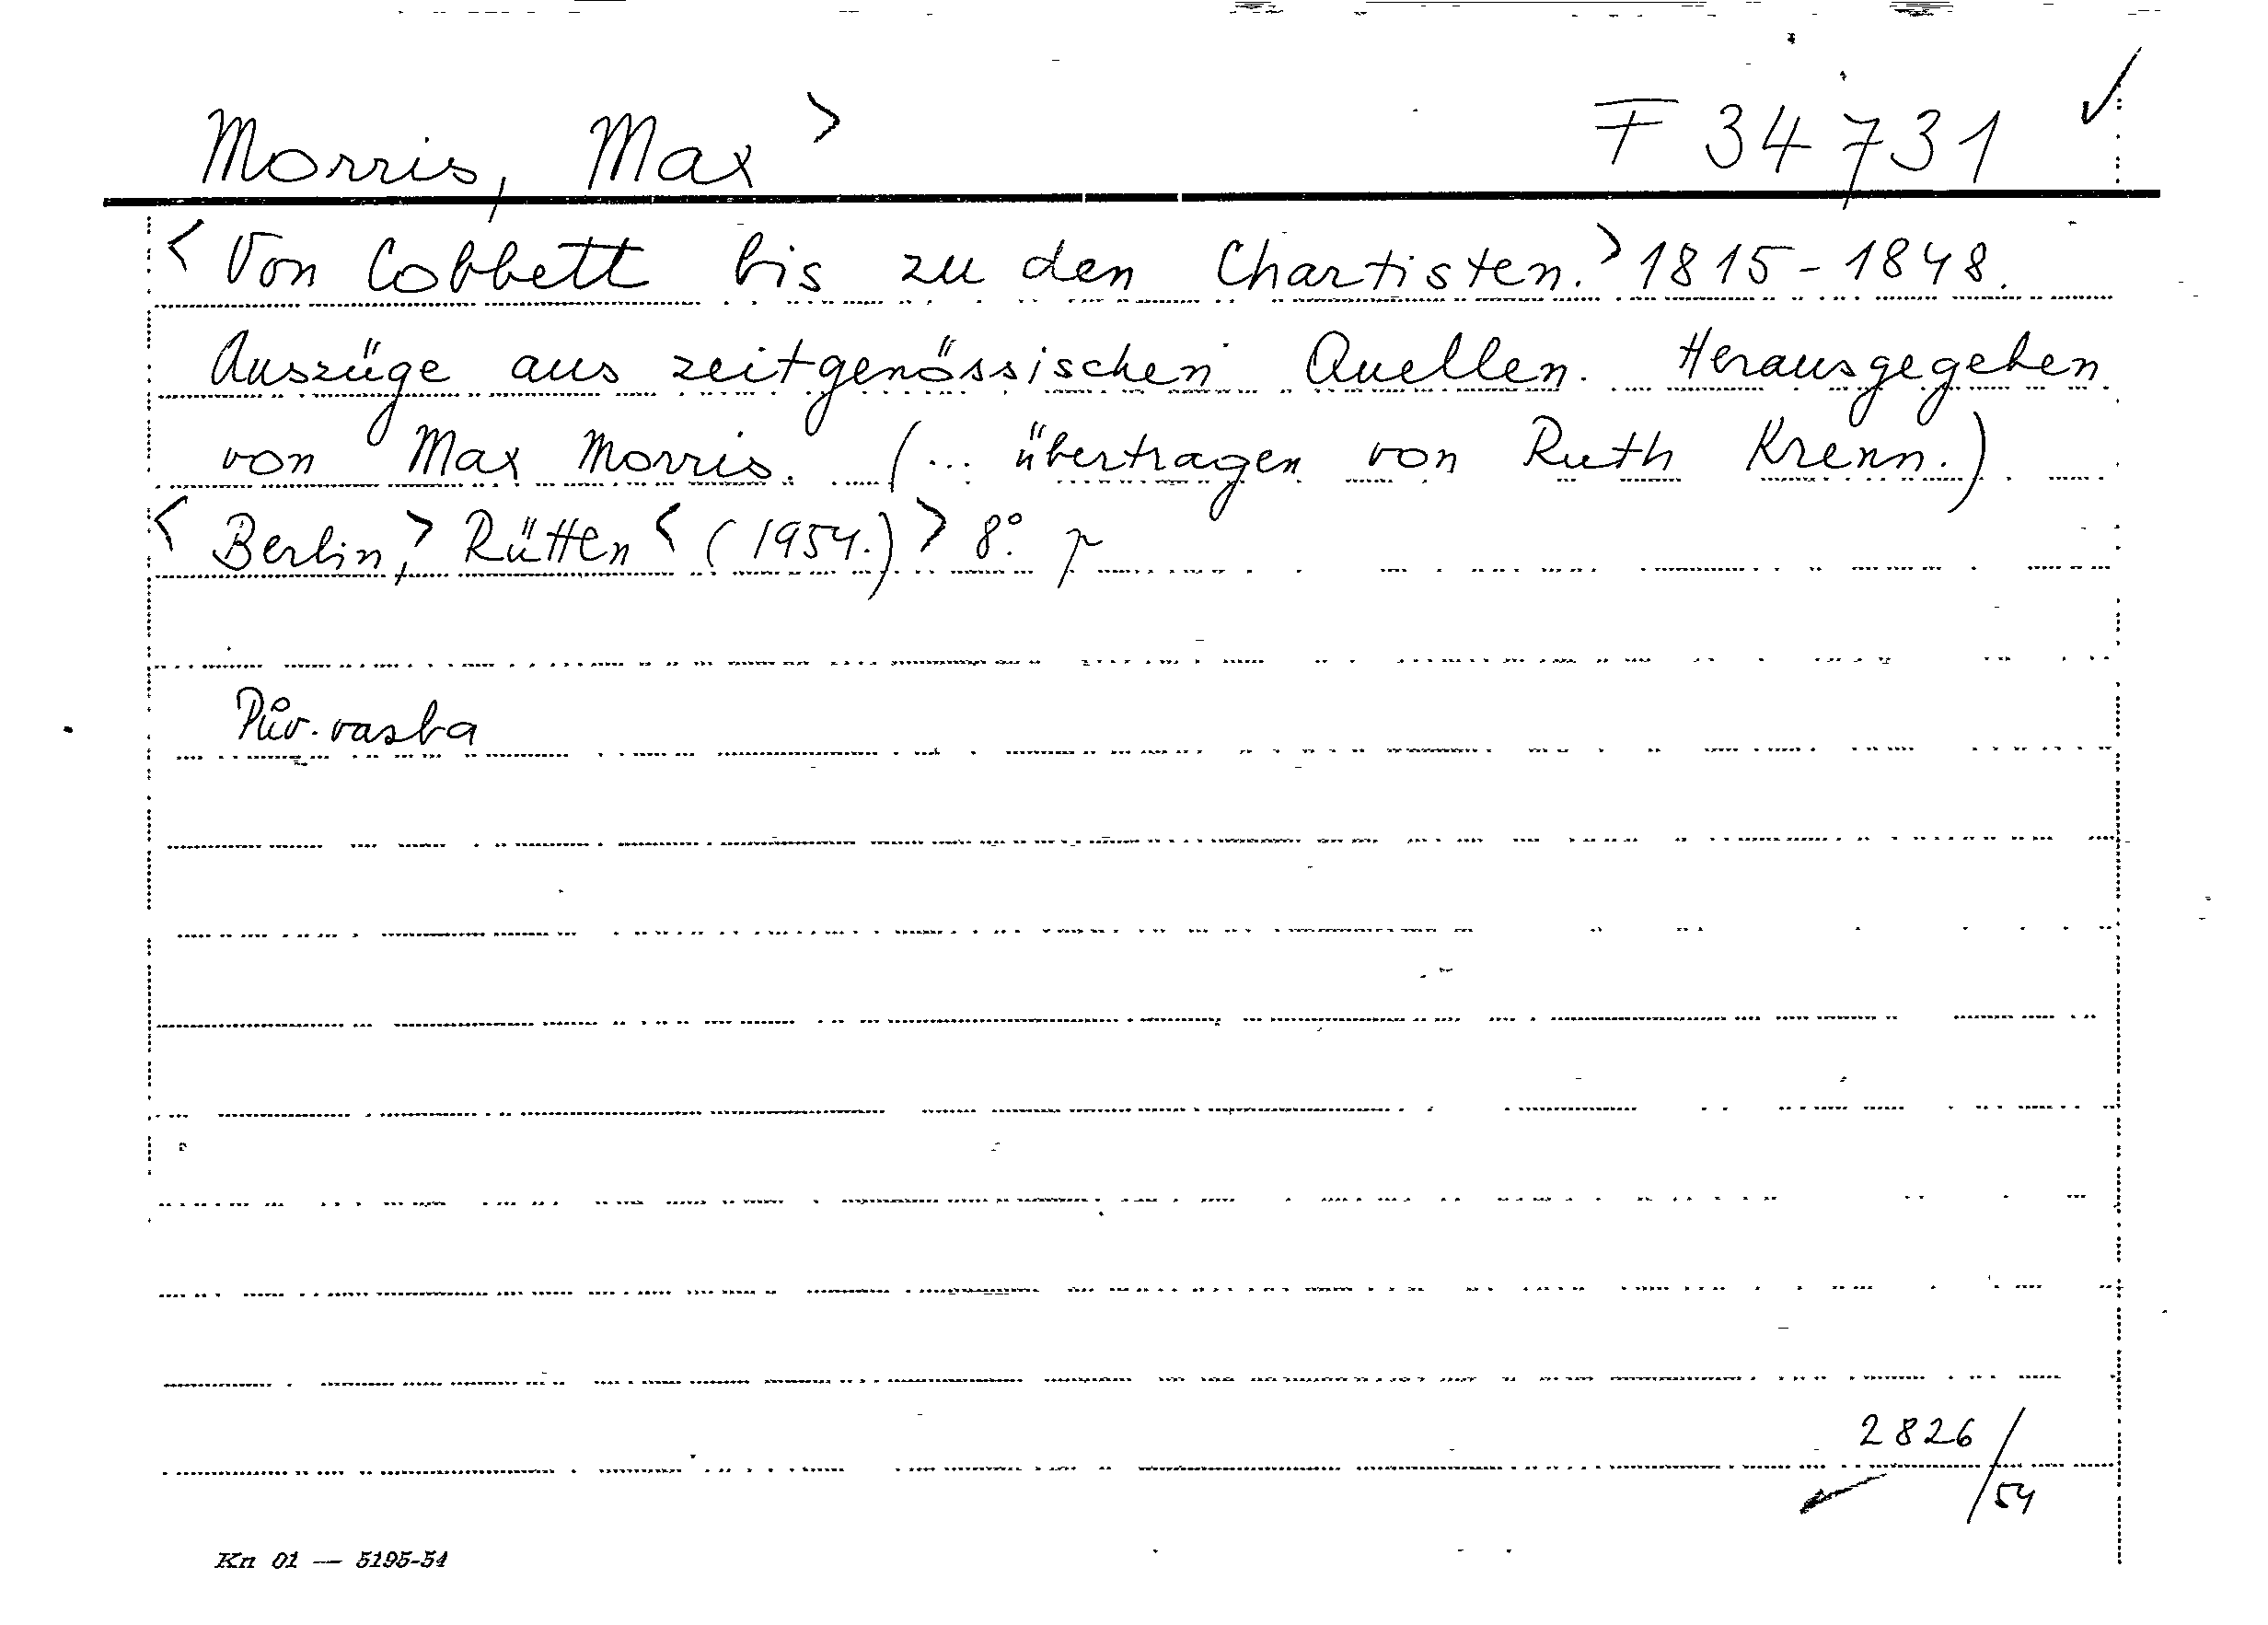 Morris, Max > F 34731 ✓
< Von Cobbett bis zu den Chartisten. > 1815-1848.
Auszüge aus zeitgenössischen Quellen. Herausgegeben
von Max Morris. (... übertragen von Ruth Krenn.)
< Berlin, > Rütten < (1954.) > 8°.
Pův. vazba
2826/54
Kn 01 — 5195-54